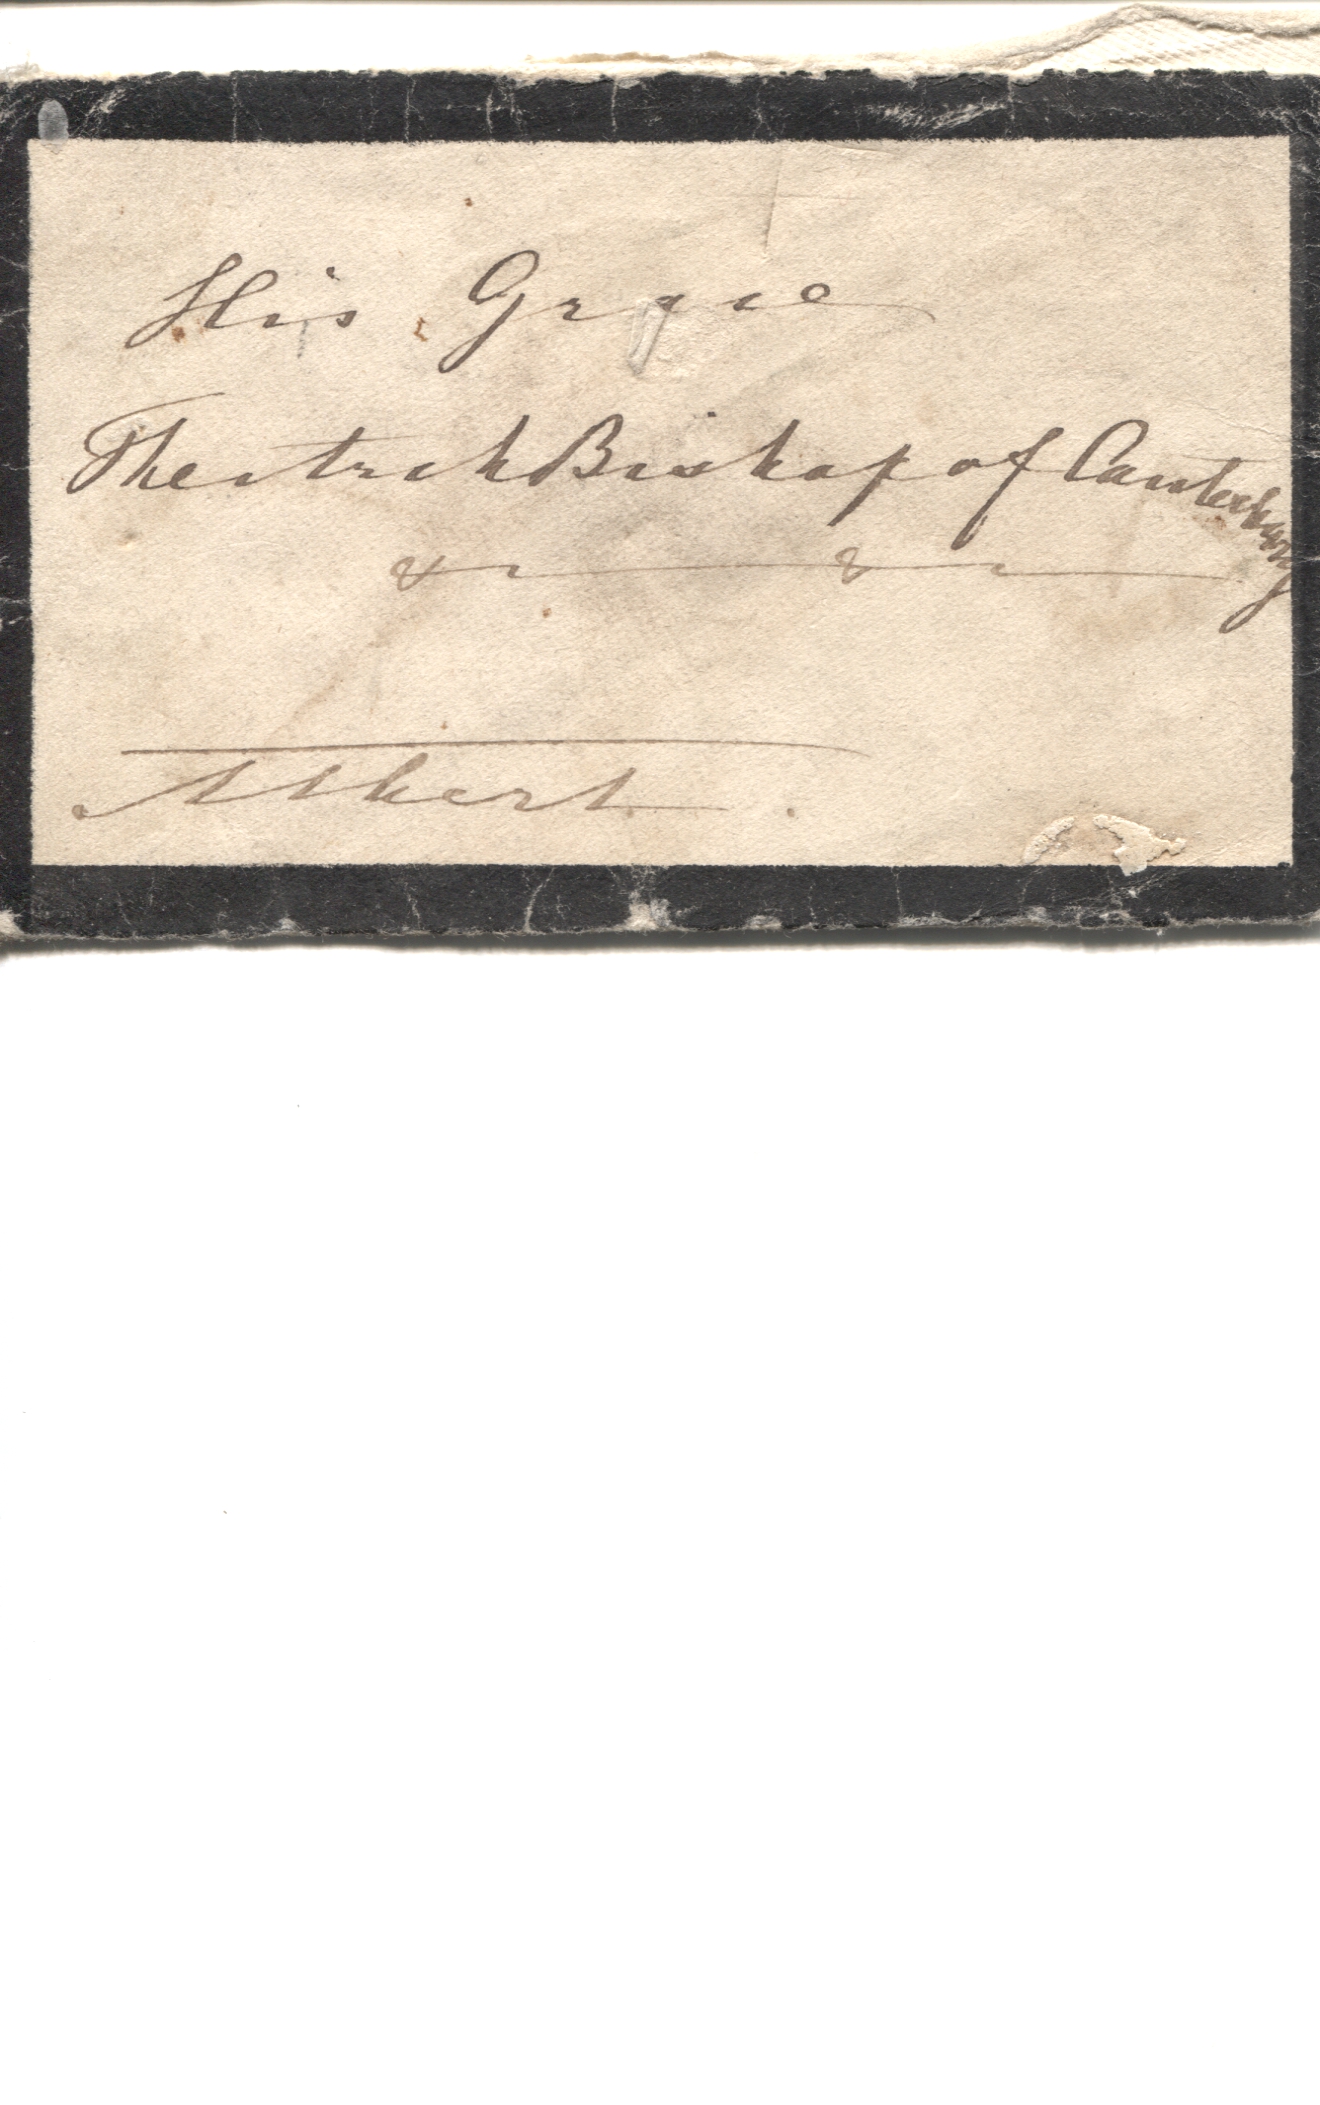 His Grace
The Arch Bishop of Canterbury
& &
Albert